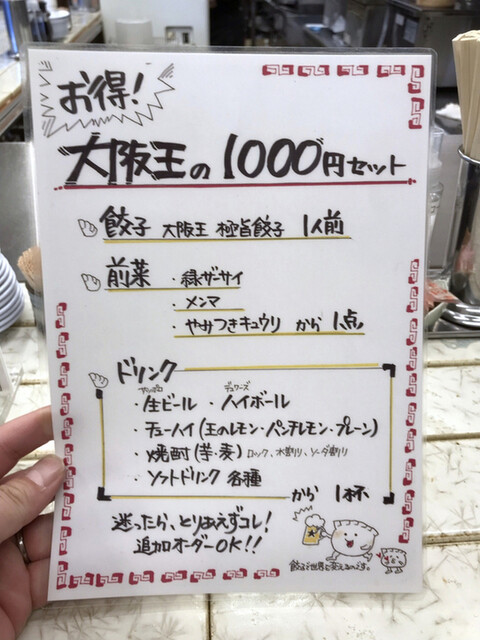 お得!
大阪王の1000円セット
餃子 大阪王 極旨餃子 1人前
前菜 ・緑ザーサイ
・メンマ
・やみつきキュウリ から 1点
ドリンク
サッポロ デュワーズ
・生ビール ・ハイボール
・チューハイ(王のレモン・パンチレモン・プレーン)
・焼酎(芋・麦) ロック、水割り、ソーダ割り
・ソフトドリンク 各種
から 1杯
迷ったら、とりあえずコレ!
追加オーダーOK!!
餃子で世界を変えるのです。